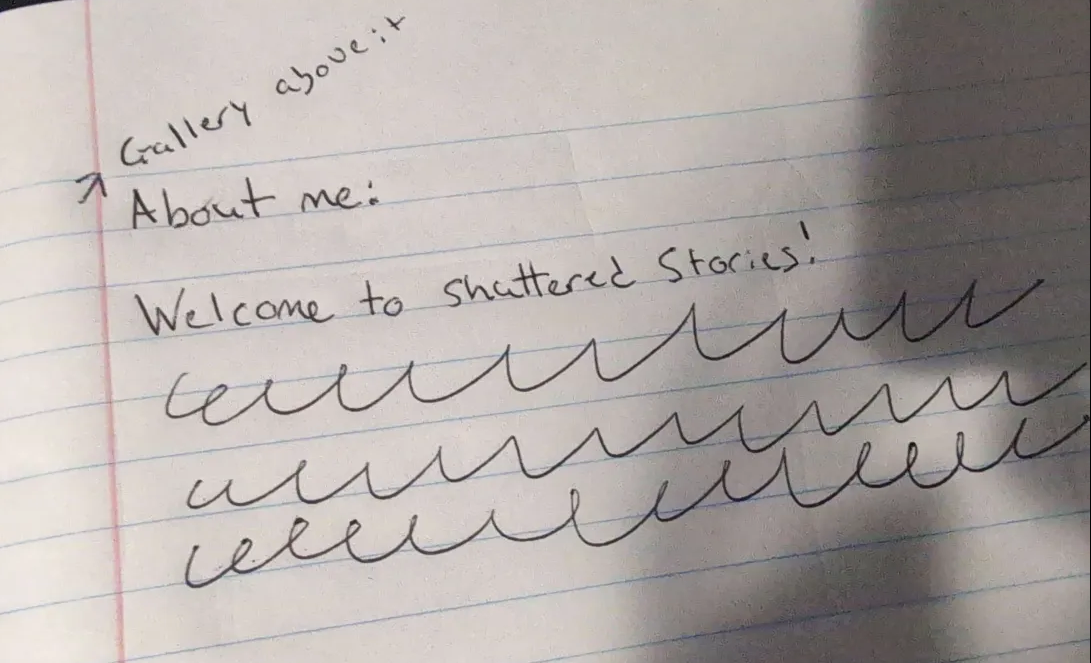 Gallery above it
About me:
Welcome to Shattered Stories!